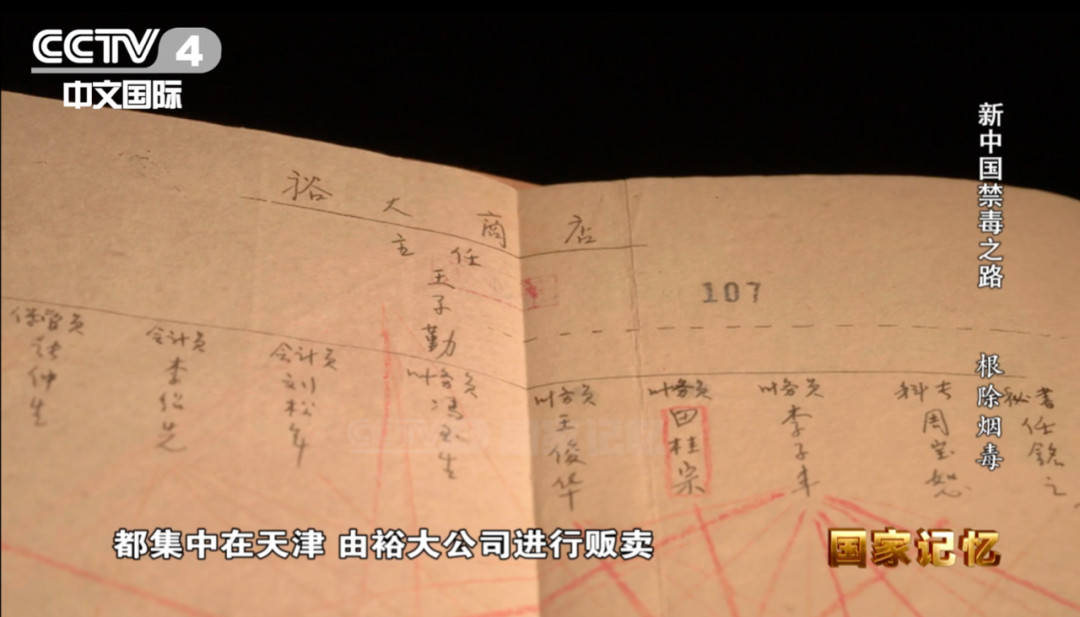 CCTV 4
中文国际
新中国禁毒之路 根除烟毒
裕大商店
主任
王子勤
107
保管员
会计员
李绍先
会计员
刘松年
业务员
业务员
王俊华
业务员
田桂宗
业务员
李子丰
周宝恕
秘书
任铭之
都集中在天津 由裕大公司进行贩卖
国家记忆